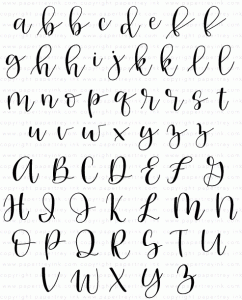 a b b c d e f f
g h h i j k k l l
m n o p q r r s t
u v w x y z z
A B C D E F G
H I J K L M N
O P Q R S T U
V W X Y Z